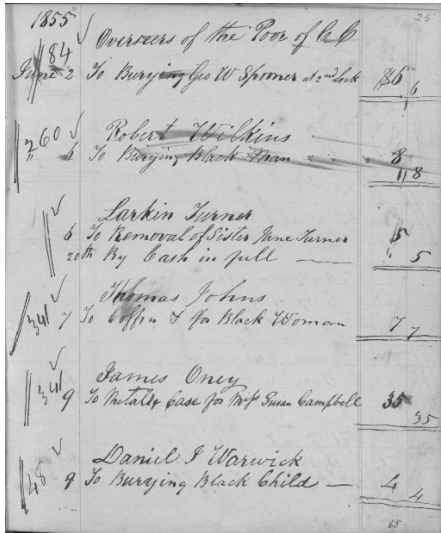 25
1855
84 Overseers of the Poor of
June 2 To Burying Geo W Spooner at 2nd lock $6
6
260 Robert Wilkins
" 6 To Burying Black Man 8
8
Larkin Turner
6 To Removal of Sister Jane Turner 5
20th By Cash in full — 5
Thomas Johns
341 7 To Coffin & for Black Woman 7
7
James Oney
341 9 To Metalic Case for Mrs Susan Campbell 35
35
Daniel I Warwick
48 9 To Burying Black Child — 4
4
65